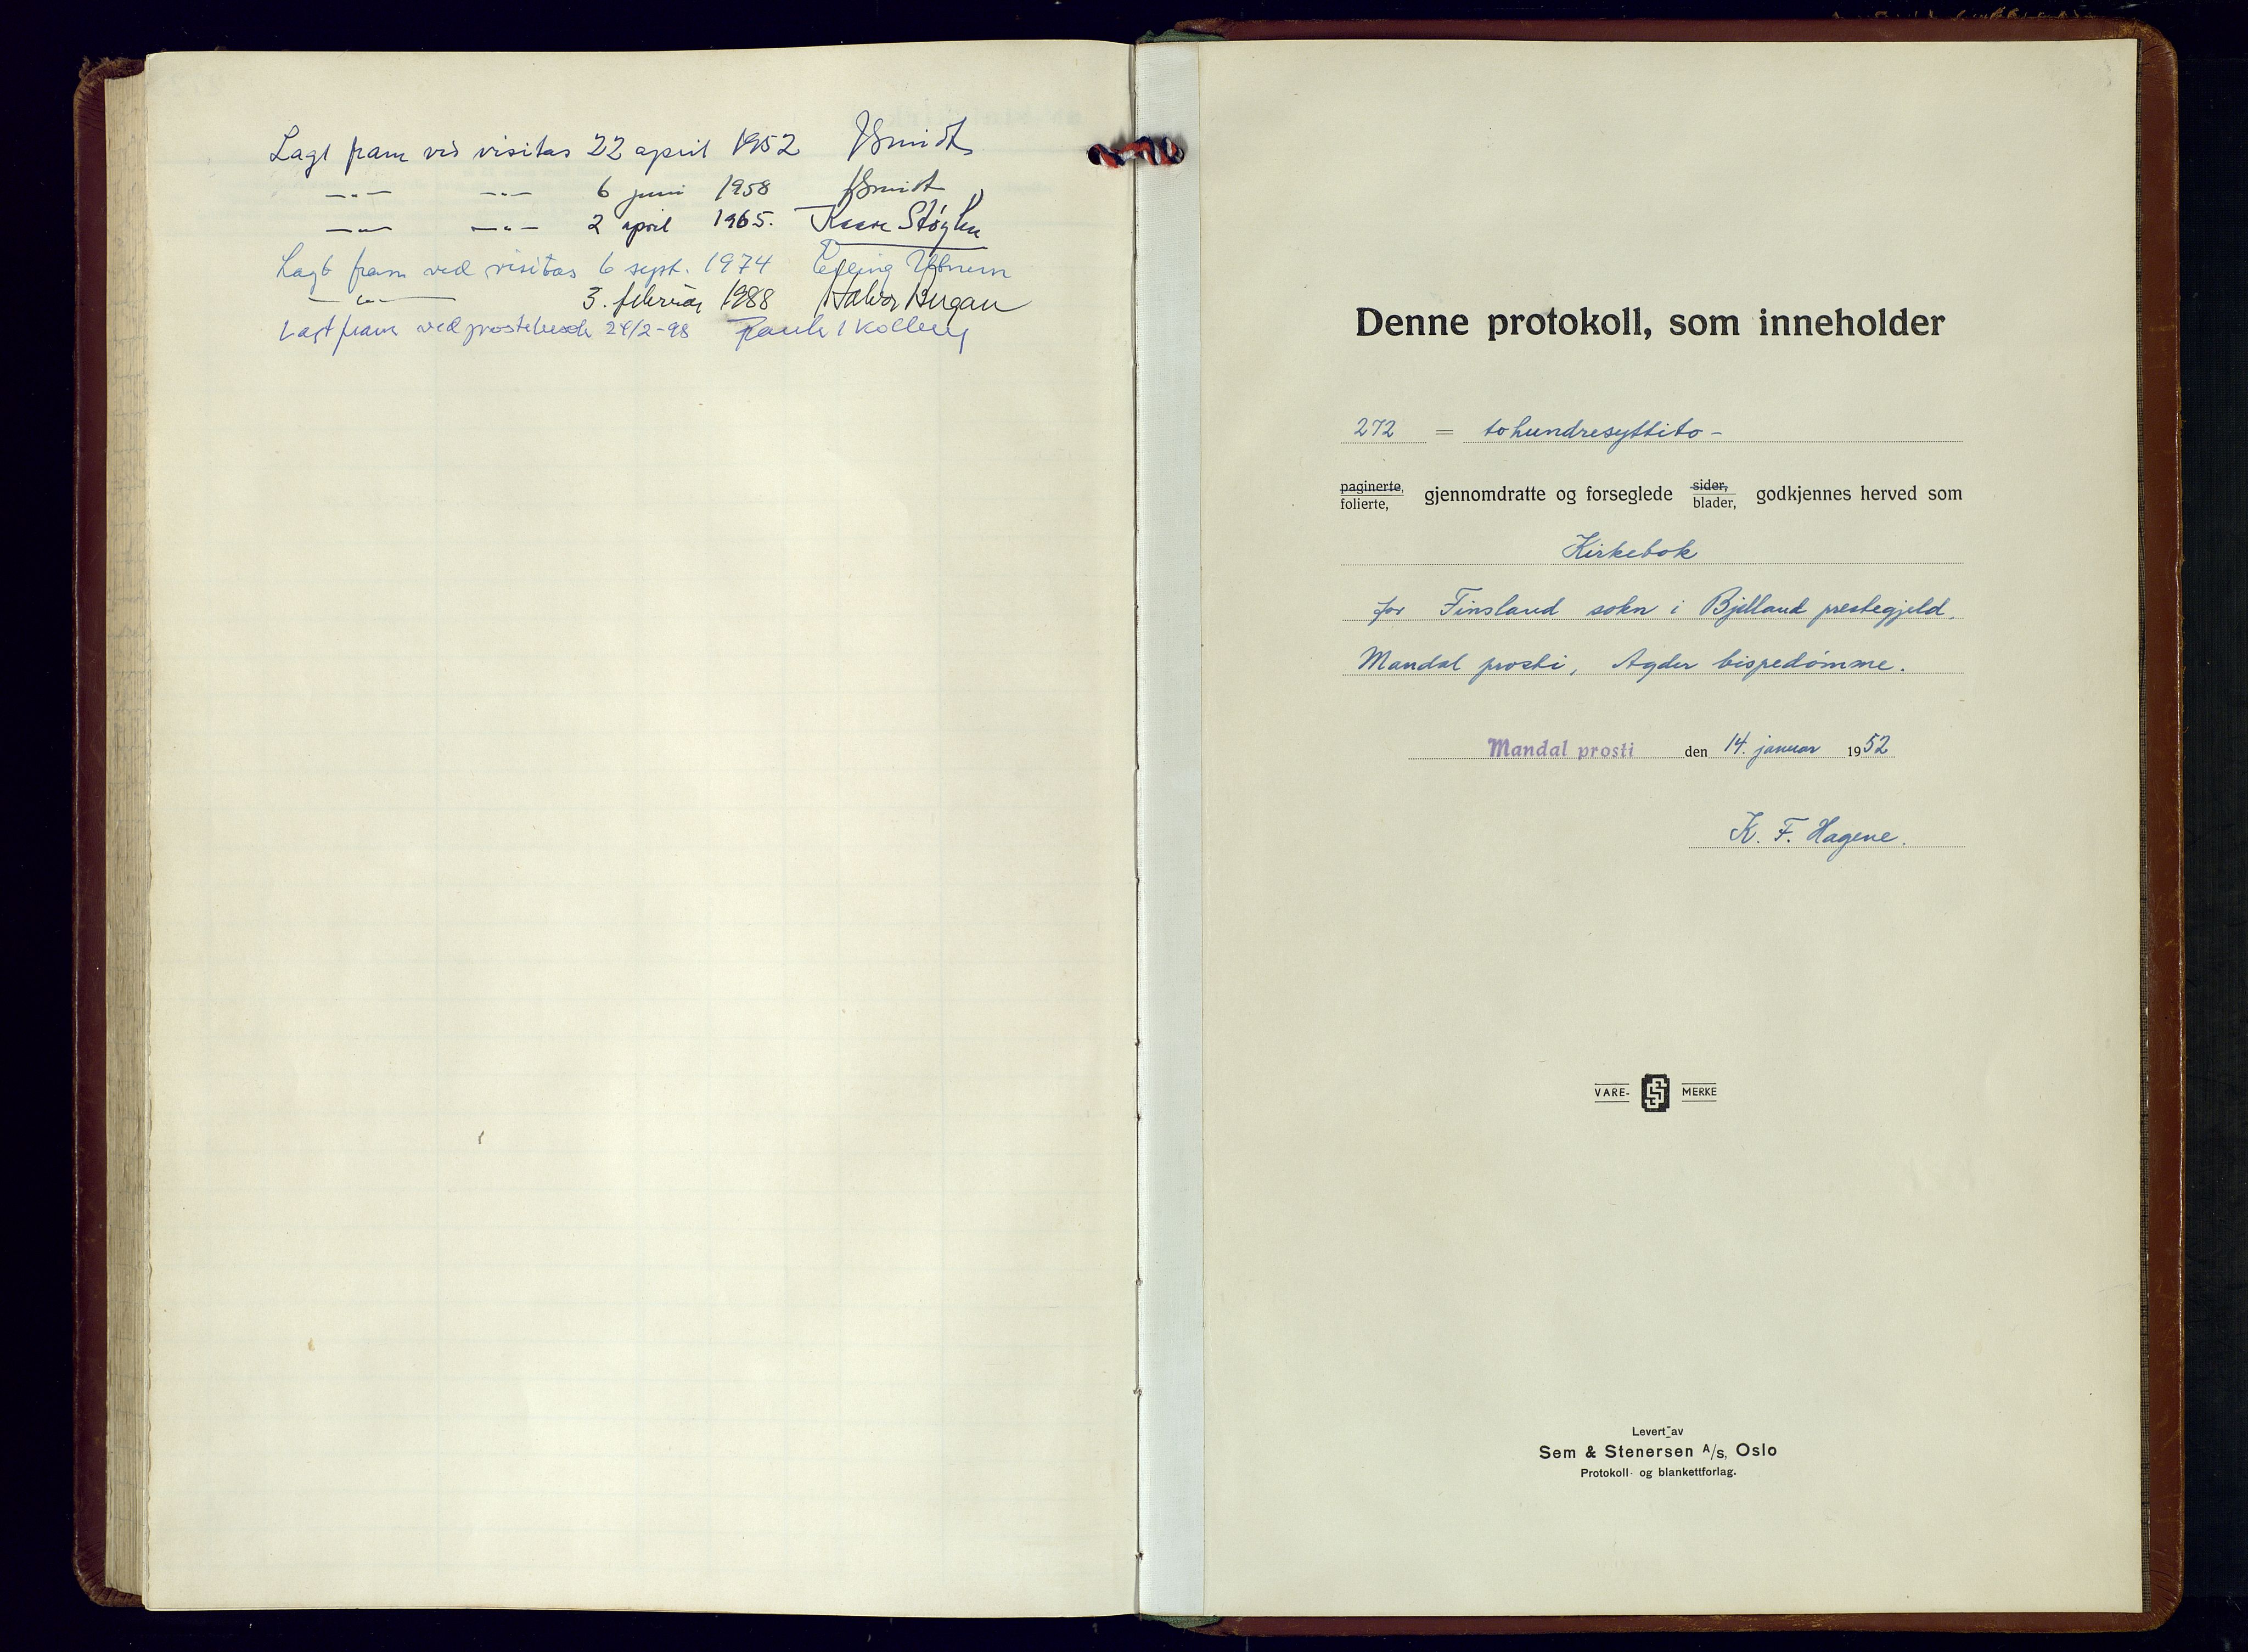 Lagt fram ved visitas 22 april 1952 JSmidt
—„— —„— 6 juni 1958 JSmidt
—„— —„— 2 april 1965. Kaare Støylen
Lagt fram ved visitas 6 sept. 1974 Erling Utnem
—„— 3. februar 1988 Halvor Bergan
Lagt fram ved prostebesøk 24/2-98
Denne protokoll, som inneholder
272 = tohundresyttito -
paginerte, folierte, gjennomdratte og forseglede sider, blader, godkjennes herved som
Kirkebok
for Finsland sokn i Bjelland prestegjeld,
Mandal prosti, Agder bispedømme.
Mandal prosti den 14. januar 1952
K. F. Hagene.
VARE- MERKE
Levert av
Sem & Stenersen A/s, Oslo
Protokoll- og blankettforlag.